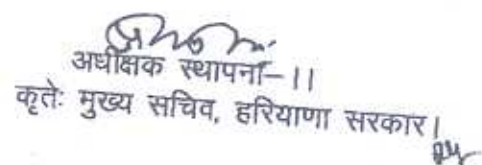 अधीक्षक स्थापना-।।
कृतेः मुख्य सचिव, हरियाणा सरकार।